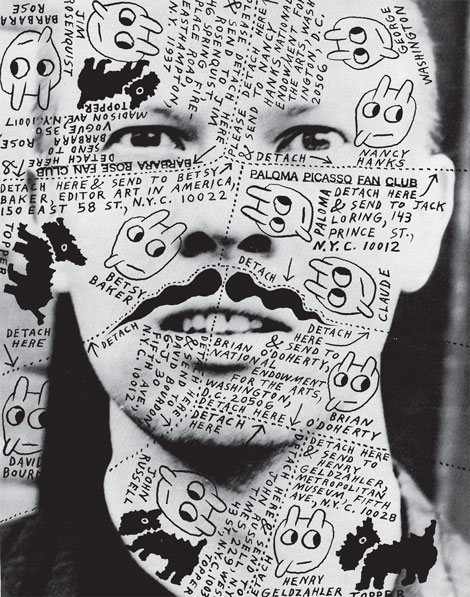 BARBARA
ROSE
JIM
ROSENQUIST
TOPPER
GEORGE
WASHINGTON
NANCY
HANKS
DETACH HERE
& SEND TO JIM
ROSENQUIST,
SPRING FIRE-
PLACE ROAD,
EASTHAMPTON,
N.Y.
PLEASE DETACH HERE
& SEND TO NANCY
HANKS, NATIONAL
ENDOWMENT FOR
THE ARTS, WASH
INGTON, D.C.
20506
DETACH →
DETACH HERE &
SEND TO
BARBARA ROSE,
VOGUE, 350
MADISON AVE, N.Y.C. 10017
BARBARA ROSE FAN CLUB
PALOMA PICASSO FAN CLUB
DETACH HERE & SEND TO BETSY
BAKER, EDITOR ART IN AMERICA,
150 EAST 58 ST., N.Y.C. 10022
PALOMA
DETACH HERE
& SEND TO JACK
LORING, 143
PRINCE ST.,
N.Y.C. 10012
TOPPER
BETSY
BAKER
DETACH
CLAUDE
DETACH
HERE
DETACH
DETACH
HERE
& SEND TO
BRIAN O'DOHERTY,
NATIONAL
ENDOWMENT
FOR THE ARTS,
WASHINGTON,
D.C. 20506
DETACH HERE
& SEND TO
DAVID BOURDON,
FIFTH AVE.,
N.Y.C. 10012
DETACH HERE
DETACH
HERE
BRIAN
O'DOHERTY
DAVID
BOURD
JOHN
RUSSELL
DETACH HERE
& SEND TO
HENRY
GELDZAHLER,
METROPOLITAN
MUSEUM, FIFTH
AVE, N.Y.C. 10028
DETACH HERE &
SEND TO
JOHN
TIMES, 229 WEST
43 ST., N.Y.C. 10036
TOPPER
HENRY
GELDZAHLER
TOPPER